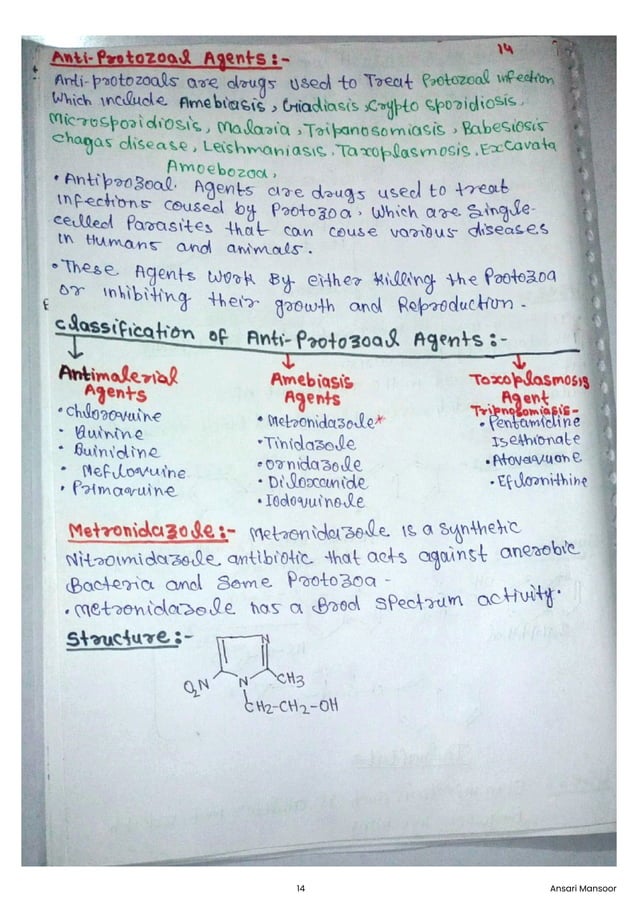 14
Anti-Protozoal Agents :-
Anti-protozoals are drugs used to Treat Protozoal infection
which include Amebiasis, Giadiasis, Crypto sporidiosis,
Microsporidiosis, Malaria, Tripanosomiasis, Babesiosis
Chagas disease, Leishmaniasis, Taxoplasmosis, Excavata
Amoebozoa,
• Antiprozoal. Agents are drugs used to treat
infections coused by Protozoa, which are Single-
celled Parasites that can couse various diseases
in Humans and animals.
• These Agents work By either killing the Protozoa
or inhibiting their growth and Reproduction -
Classification of Anti-Protozoal Agents :-
Antimalerial
Agents
• Chlorovuine
• Quinine
• Quinidine
• Mefloquine
• Primaquine
Amebiasis
Agents
• Metronidazole*
• Tinidazole
• Ornidazole
• Diloxcanide
• Iodovuinole
Toxoplasmosis
Agent
Tripnosomiasis-
• Pentamidine
Isethionate
• Atovavuone
• Eflornithine
Metronidazole :- Metronidazole is a synthetic
Nitroimidazole antibiotic that acts against anerobic
Bacteria and some Protozoa -
• Metronidazole has a Brod Spectrum activity.
Structure :-
N
O2N N CH3
CH2-CH2-OH
14 Ansari Mansoor